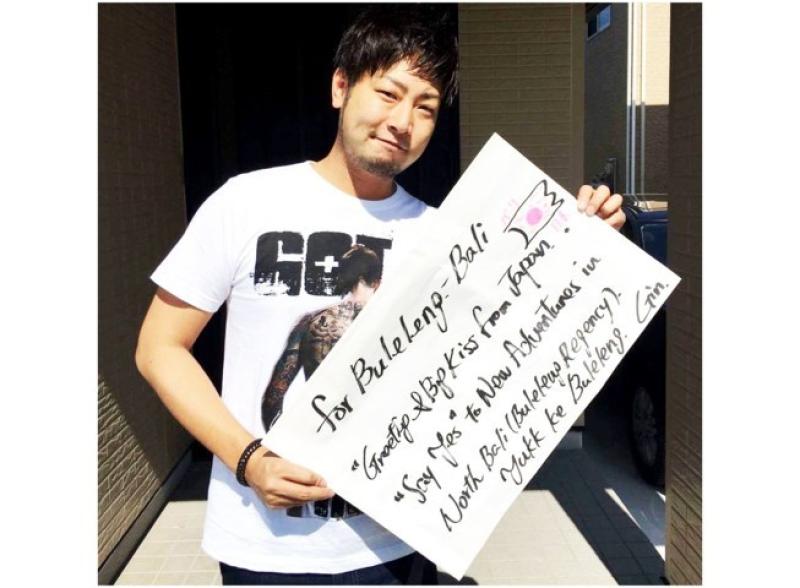 GOT
for Buleleng - Bali
バリ
日本
"Greetings & Big Kiss from Japan!
"Say Yes" to New Adventures in
North Bali (Buleleng Regency).
Yukk ke Buleleng. Grin.